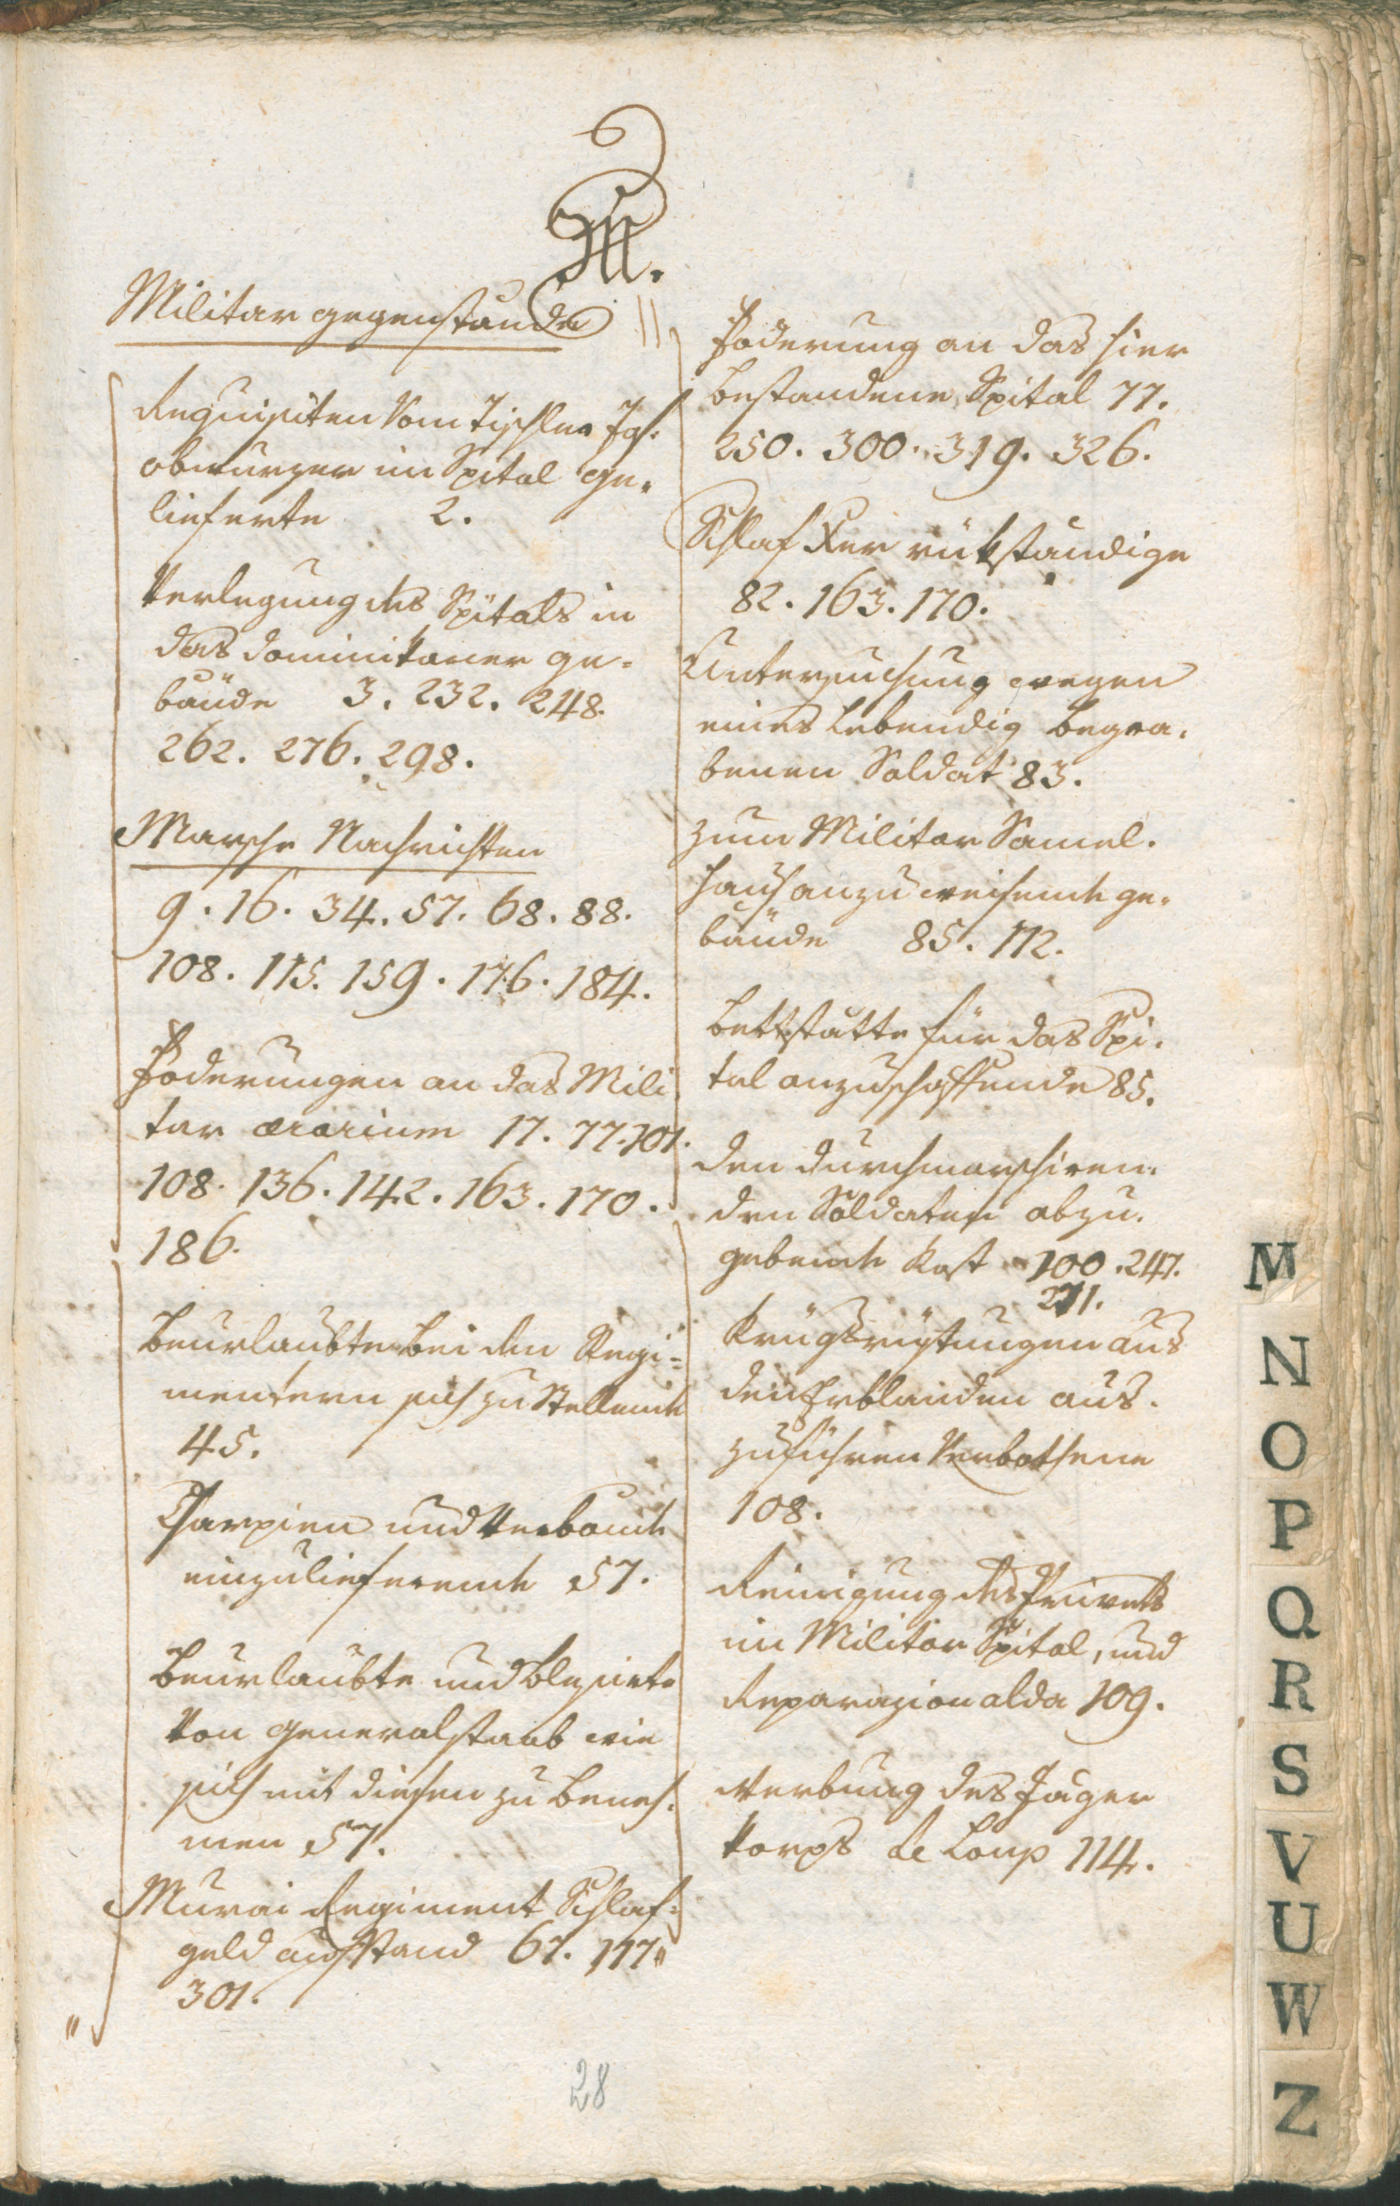 M.
Militar gegenstande
Requisiten vom Tischler
im Spital ge-
lieferte 2.
Verlegung des Spitals in
das Dominikaner ge-
bäude 3. 232. 248.
262. 276. 298.
Marsche Nachrichten
9. 16. 34. 57. 68. 88.
108. 115. 159. 176. 184.
Foderungen an das Mili
tar ærarium 17. 77. 101.
108. 136. 142. 163. 170.
186.
Beurlaubte bei den Regi=
mentern sich zu Stellende
45.
Charpien und Verbande
einzuliefernde 57.
Beurlaubte und blesirte
von generalstaab wie
sich mit diesen zu beneh-
men 57.
Murai Regiment Schlaf-
geld ausstand 67. 117.
301.
Foderung an das hier
bestandene Spital 77.
250. 300. 319. 326.
Schlaf Xer rükständige
82. 163. 170.
Untersuchung wegen
eines Lebendig begra-
benen Soldat 83.
zum Militar Samel-
haus anzuweisende ge-
bäude 85. 112.
Bettstatte für das Spi-
tal anzuschaffende 85.
den durchmarschiren-
den Soldaten abzu-
gebende Kost 100. 247.
271.
Kriegsrüstungen aus
den Erblanden aus-
zuführen Verbothene
108.
Reinigung des Privets
im Militar Spital, und
Reparazion alda 109.
Werbung des Jäger
Korps de Loup 114.
28
M
N
O
P
Q
R
S
V
U
W
Z